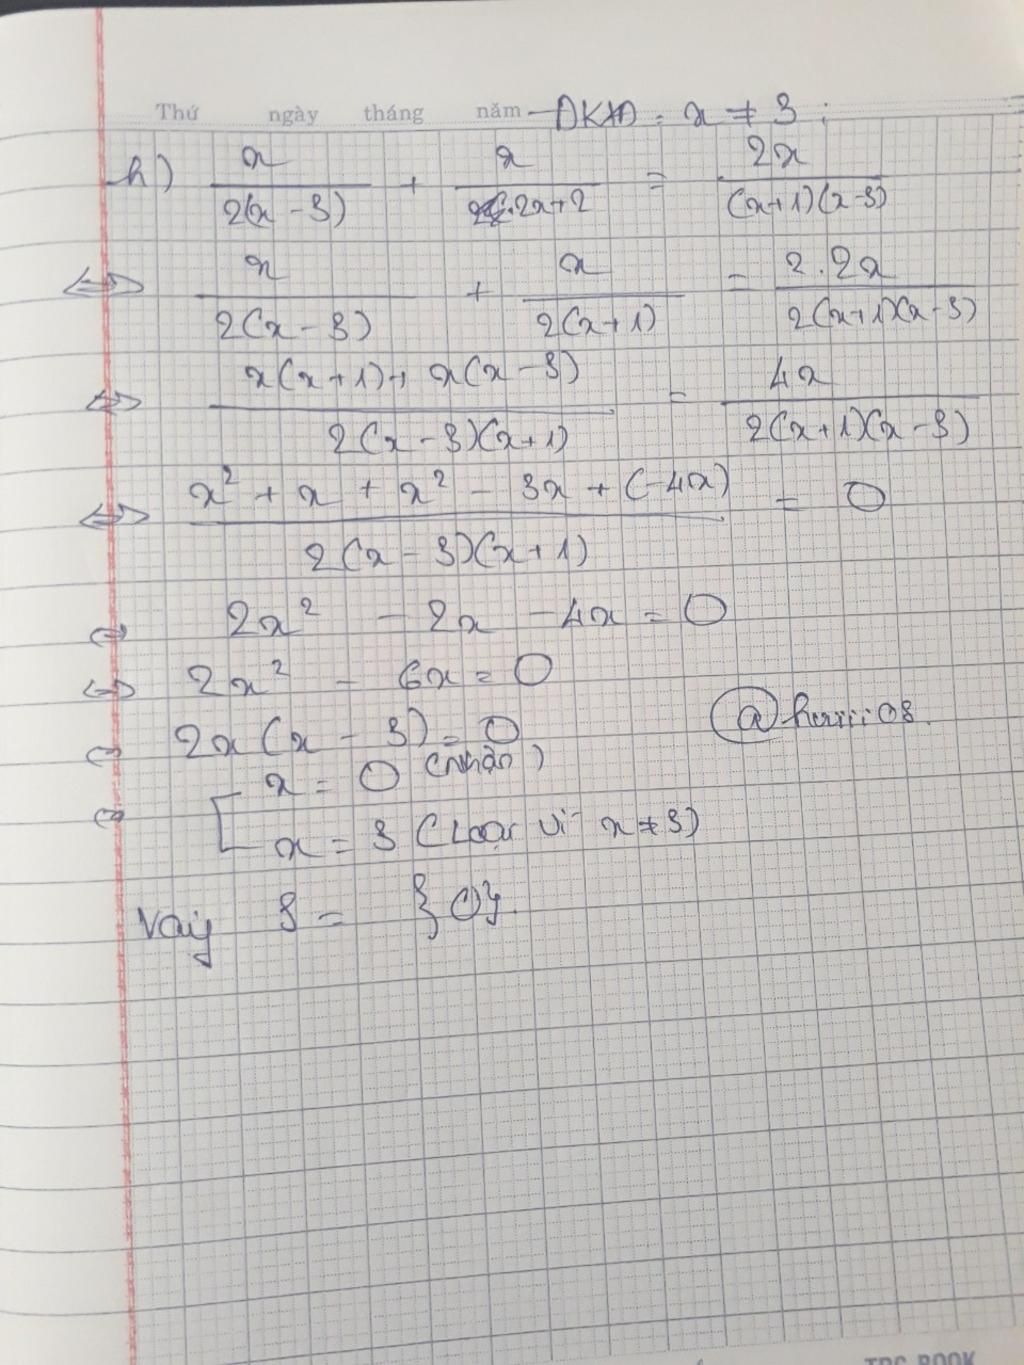 Thứ ngày tháng năm ĐKXĐ: x ≠ 3;
h) x/2(x-3) + x/2x+2 = 2x/(x+1)(x-3)
<=> x/2(x-3) + x/2(x+1) = 2.2x/2(x+1)(x-3)
<=> x(x+1)+x(x-3)/2(x-3)(x+1) = 4x/2(x+1)(x-3)
<=> x²+x+x²-3x+(-4x)/2(x-3)(x+1) = 0
<=> 2x² - 2x - 4x = 0
<=> 2x² - 6x = 0
<=> 2x(x-3) = 0
@heriii08.
<=> [ x = 0 (nhận)
x = 3 (Loại vì x ≠ 3)
Vậy S = {0}.
TPG BOOK